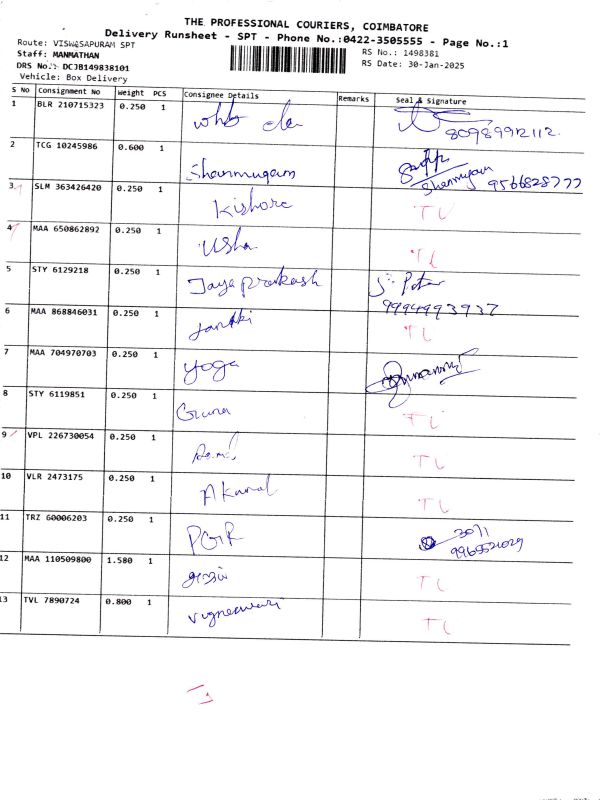 THE PROFESSIONAL COURIERS, COIMBATORE
Delivery Runsheet - SPT - Phone No.:0422-3505555 - Page No.:1
Route: VISWASAPURAM SPT
Staff: MANMATHAN
RS No.: 1498381
DRS No.: DCJB149838101
RS Date: 30-Jan-2025
Vehicle: Box Delivery
S No Consignment No Weight PCS Consignee Details Remarks Seal & Signature
1 BLR 210715323 0.250 1 80989912112.
2 TCG 10245986 0.600 1 Shanmugam Shanmugam 9566828777
3 SLM 363426420 0.250 1 Kishore TL
4 MAA 650862892 0.250 1 Usha TL
5 STY 6129218 0.250 1 Jayaprakash 9994993937
6 MAA 868846031 0.250 1 Janaki TL
7 MAA 704970703 0.250 1 Yoga
8 STY 6119851 0.250 1 Guna TL
9 VPL 226730054 0.250 1 TL
10 VLR 2473175 0.250 1 A Kamal TL
11 TRZ 60006203 0.250 1 PGR 3011
12 MAA 110509800 1.580 1 TL
13 TVL 7890724 0.800 1 Vigneswari TL